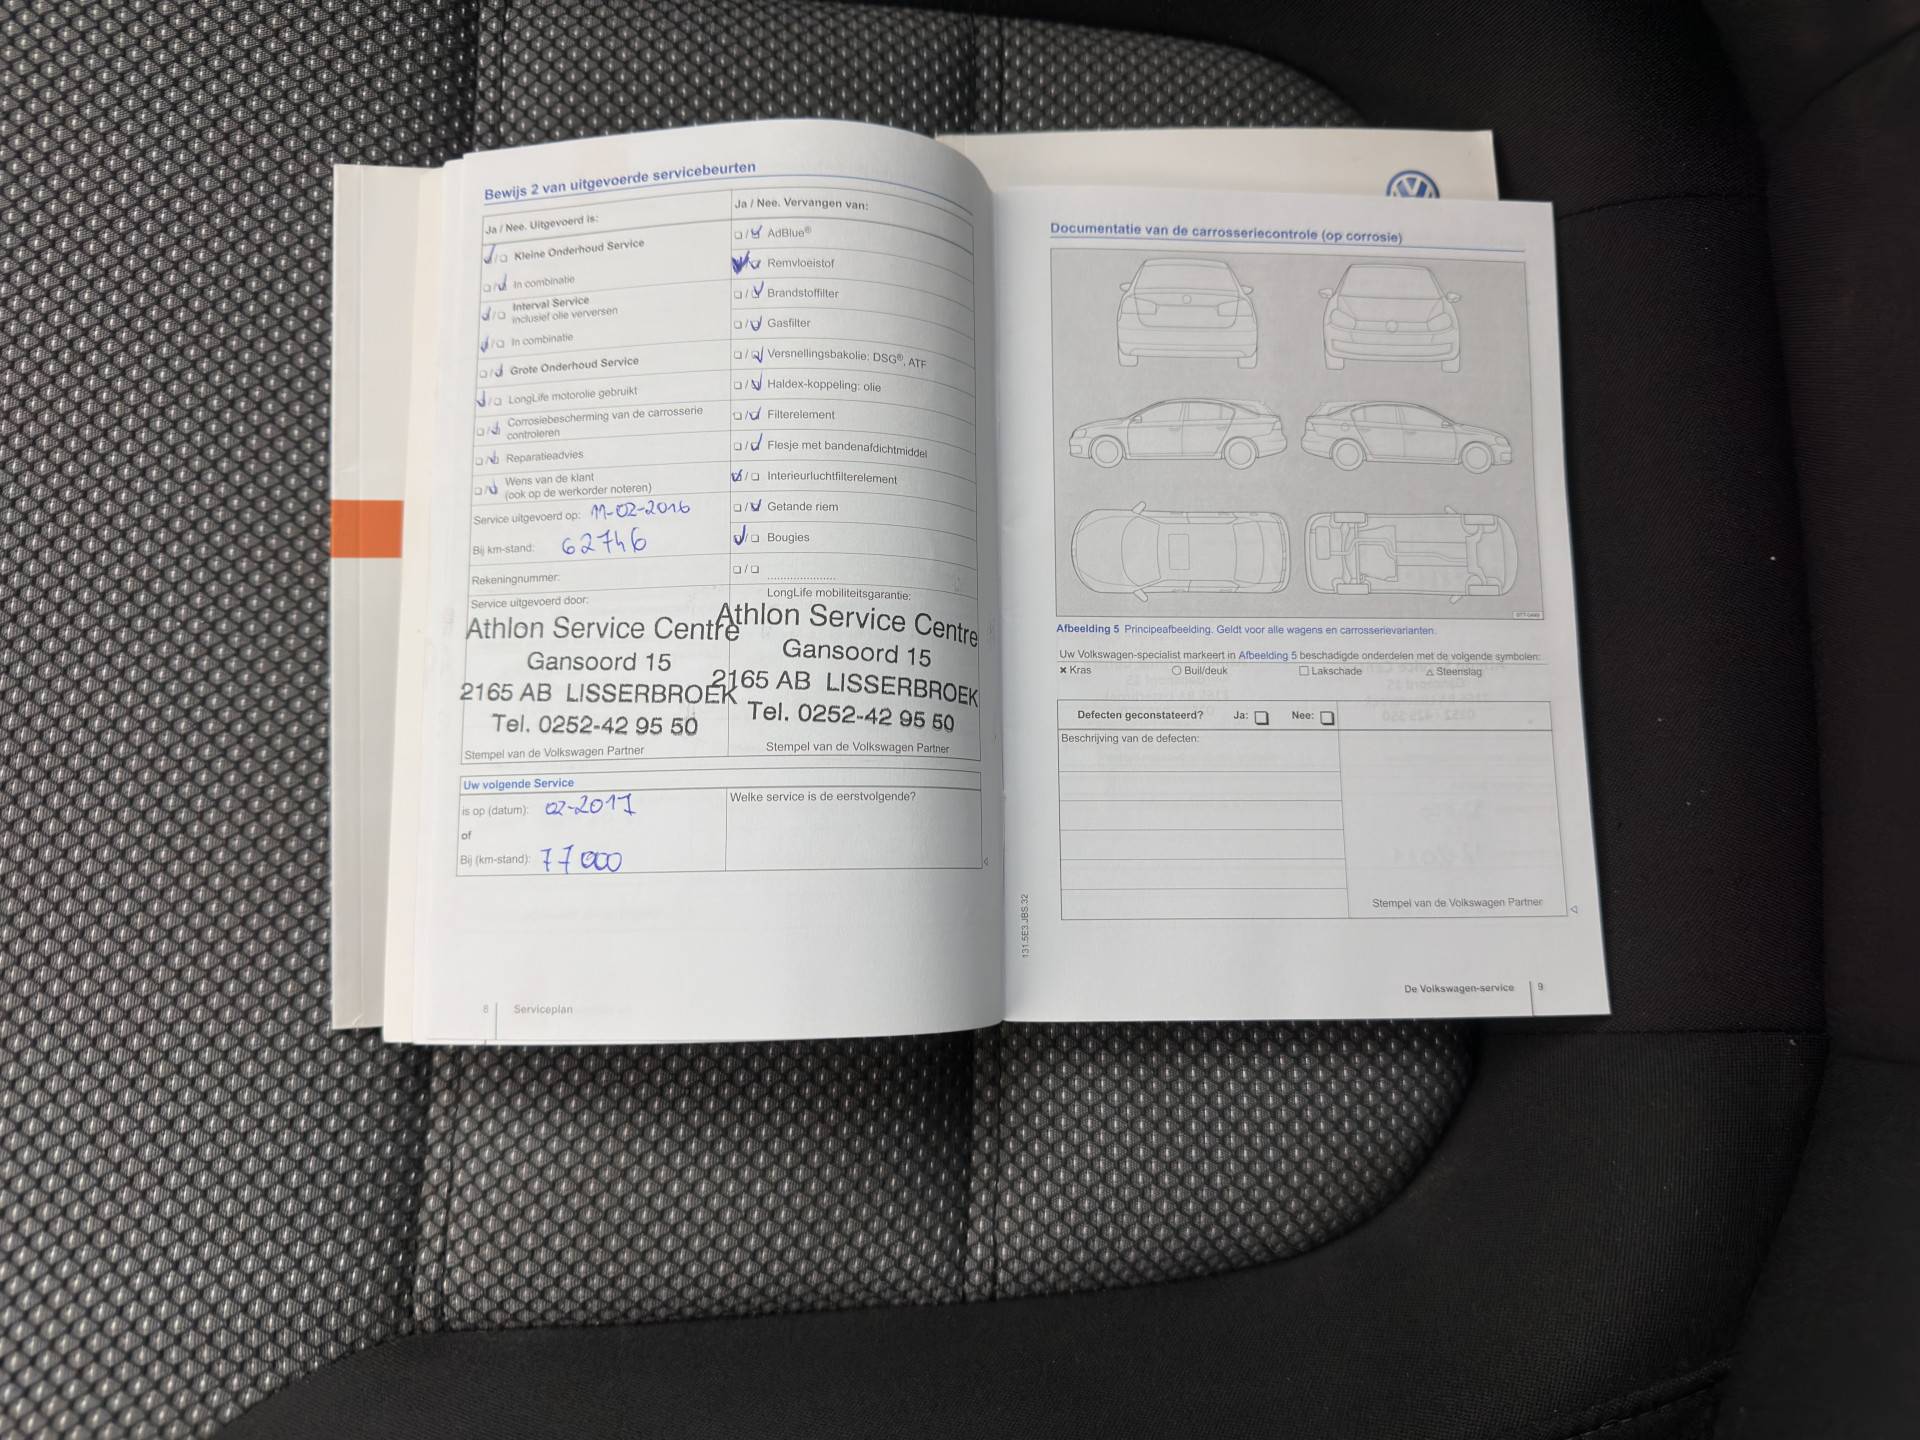 Bewijs 2 van uitgevoerde servicebeurten
Ja / Nee. Uitgevoerd is:
Kleine Onderhoud Service
In combinatie
Interval Service
inclusief olie verversen
In combinatie
Grote Onderhoud Service
LongLife motorolie gebruikt
Corrosiebescherming van de carrosserie
controleren
Reparatieadvies
Wens van de klant
(ook op de werkorder noteren)
Service uitgevoerd op: 11-02-2016
Bij km-stand: 62746
Rekeningnummer:
Service uitgevoerd door:
Athlon Service Centre
Gansoord 15
2165 AB LISSERBROEK
Tel. 0252-42 95 50
Stempel van de Volkswagen Partner
Ja / Nee. Vervangen van:
AdBlue®
Remvloeistof
Brandstoffilter
Gasfilter
Versnellingsbakolie: DSG®, ATF
Haldex-koppeling: olie
Filterelement
Flesje met bandenafdichtmiddel
Interieurluchtfilterelement
Getande riem
Bougies
LongLife mobiliteitsgarantie:
Athlon Service Centre
Gansoord 15
2165 AB LISSERBROEK
Tel. 0252-42 95 50
Stempel van de Volkswagen Partner
Uw volgende Service
is op (datum): 02-2017
of
Bij (km-stand): 77000
Welke service is de eerstvolgende?
8 Serviceplan
Documentatie van de carrosseriecontrole (op corrosie)
Afbeelding 5 Principeafbeelding. Geldt voor alle wagens en carrosserievarianten.
Uw Volkswagen-specialist markeert in Afbeelding 5 beschadigde onderdelen met de volgende symbolen:
× Kras ○ Buil/deuk □ Lakschade △ Steenslag
Defecten geconstateerd? Ja: Nee:
Beschrijving van de defecten:
Stempel van de Volkswagen Partner
131.5E3.JBS.32
De Volkswagen-service 9